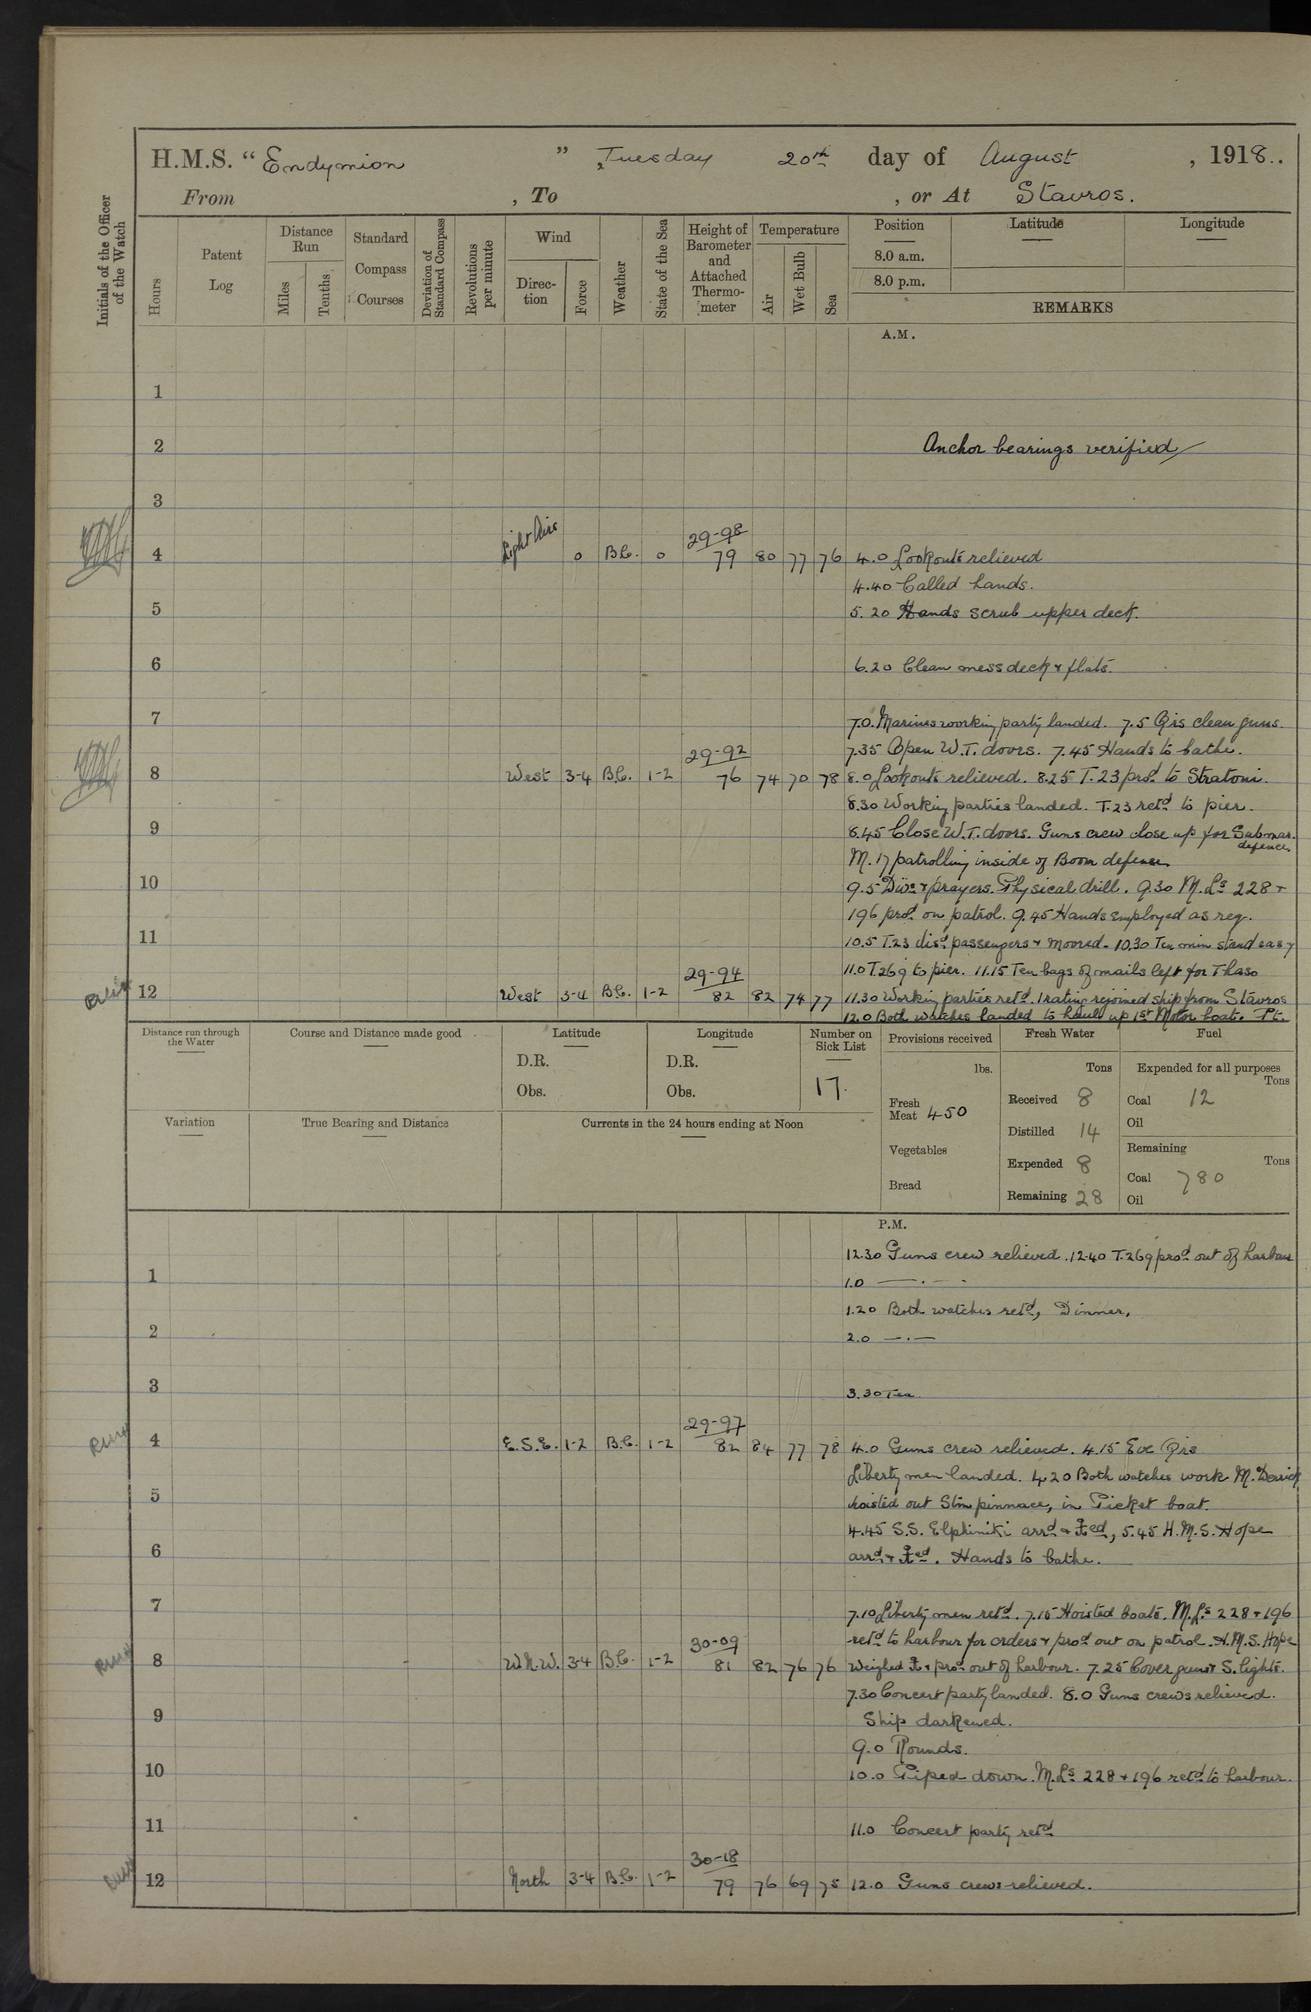 H.M.S. "Endymion", Tuesday 20th day of August, 1918..
From , To , or At Stavros.
Initials of the Officer of the Watch
Hours
Patent Log
Distance Run
Miles
Tenths
Standard Compass Courses
Deviation of Standard Compass
Revolutions per minute
Wind
Direction
Force
Weather
State of the Sea
Height of Barometer and Attached Thermometer
Temperature
Air
Wet Bulb
Sea
Position Latitude Longitude
8.0 a.m.
8.0 p.m.
REMARKS
A.M.
1
2 Anchor bearings verified
3
29-98
4 Light Airs 0 B.C. 0 79 80 77 76 4.0 Lookouts relieved
4.40 Called hands.
5 5.20 Hands scrub upper deck.
6 6.20 Clean mess deck & flats.
7 7.0. Marines working party landed. 7.5 Qrs clean guns.
29-92 7.35 Open W.T. doors. 7.45 Hands to bathe.
8 West 3-4 B.C. 1-2 76 74 70 78 8.0 Lookouts relieved. 8.25 T.23 procd to Stratoni.
8.30 Working parties landed. T.23 retd to pier.
9 8.45 Close W.T. doors. Guns crew close up for Submar. defence
M.17 patrolling inside of Boom defence
10 9.5 Divs & prayers. Physical drill. 9.30 M.Ls 228 +
196 procd on patrol. 9.45 Hands employed as req.
11 10.5 T.23 disd passengers & moored. 10.30 Ten min stand easy
29-94 11.0 T.269 to pier. 11.15 Ten bags of mails left for Thaso
12 West 3-4 B.C. 1-2 82 82 74 77 11.30 Working parties retd. 1 rating rejoined ship from Stavros
12.0 Both watches landed to haul up 1st Motor boat. Pt.
Distance run through the Water
Course and Distance made good
Latitude
D.R.
Obs.
Longitude
D.R.
Obs.
Number on Sick List
17.
Provisions received
lbs.
Fresh Meat 450
Vegetables
Bread
Fresh Water
Tons
Received 8
Distilled 14
Expended 8
Remaining 28
Fuel
Expended for all purposes
Tons
Coal 12
Oil
Remaining
Tons
Coal 780
Oil
Variation
True Bearing and Distance
Currents in the 24 hours ending at Noon
P.M.
12.30 Guns crew relieved. 12.40 T.269 procd out of harbour
1 1.0 — . —
1.20 Both watches retd, Dinner.
2 2.0 — . —
3 3.30 Tea
29-97
4 E.S.E. 1-2 B.C. 1-2 82 84 77 78 4.0 Guns crew relieved. 4.15 Eve Qrs
Liberty men landed. 4.20 Both watches work M. Derrick
5 hoisted out Stm pinnace, in Picket boat.
4.45 S.S. Elphiniki arrd & ⚓ed, 5.45 H.M.S. Hope
6 arrd & ⚓ed. Hands to bathe.
7 7.10 Liberty men retd. 7.15 Hoisted boats. M.Ls 228 + 196
30-09 retd to harbour for orders & procd out on patrol. H.M.S. Hope
8 W.N.W. 3-4 B.C. 1-2 81 82 76 76 Weighed ⚓ & procd out of harbour. 7.25 Cover guns & S. lights.
7.30 Concert party landed. 8.0 Guns crews relieved.
9 Ship darkened.
9.0 Rounds.
10 10.0 Piped down. M.Ls 228 + 196 retd to harbour.
11 11.0 Concert party retd
30-18
12 North 3-4 B.C. 1-2 79 76 69 75 12.0 Guns crews relieved.